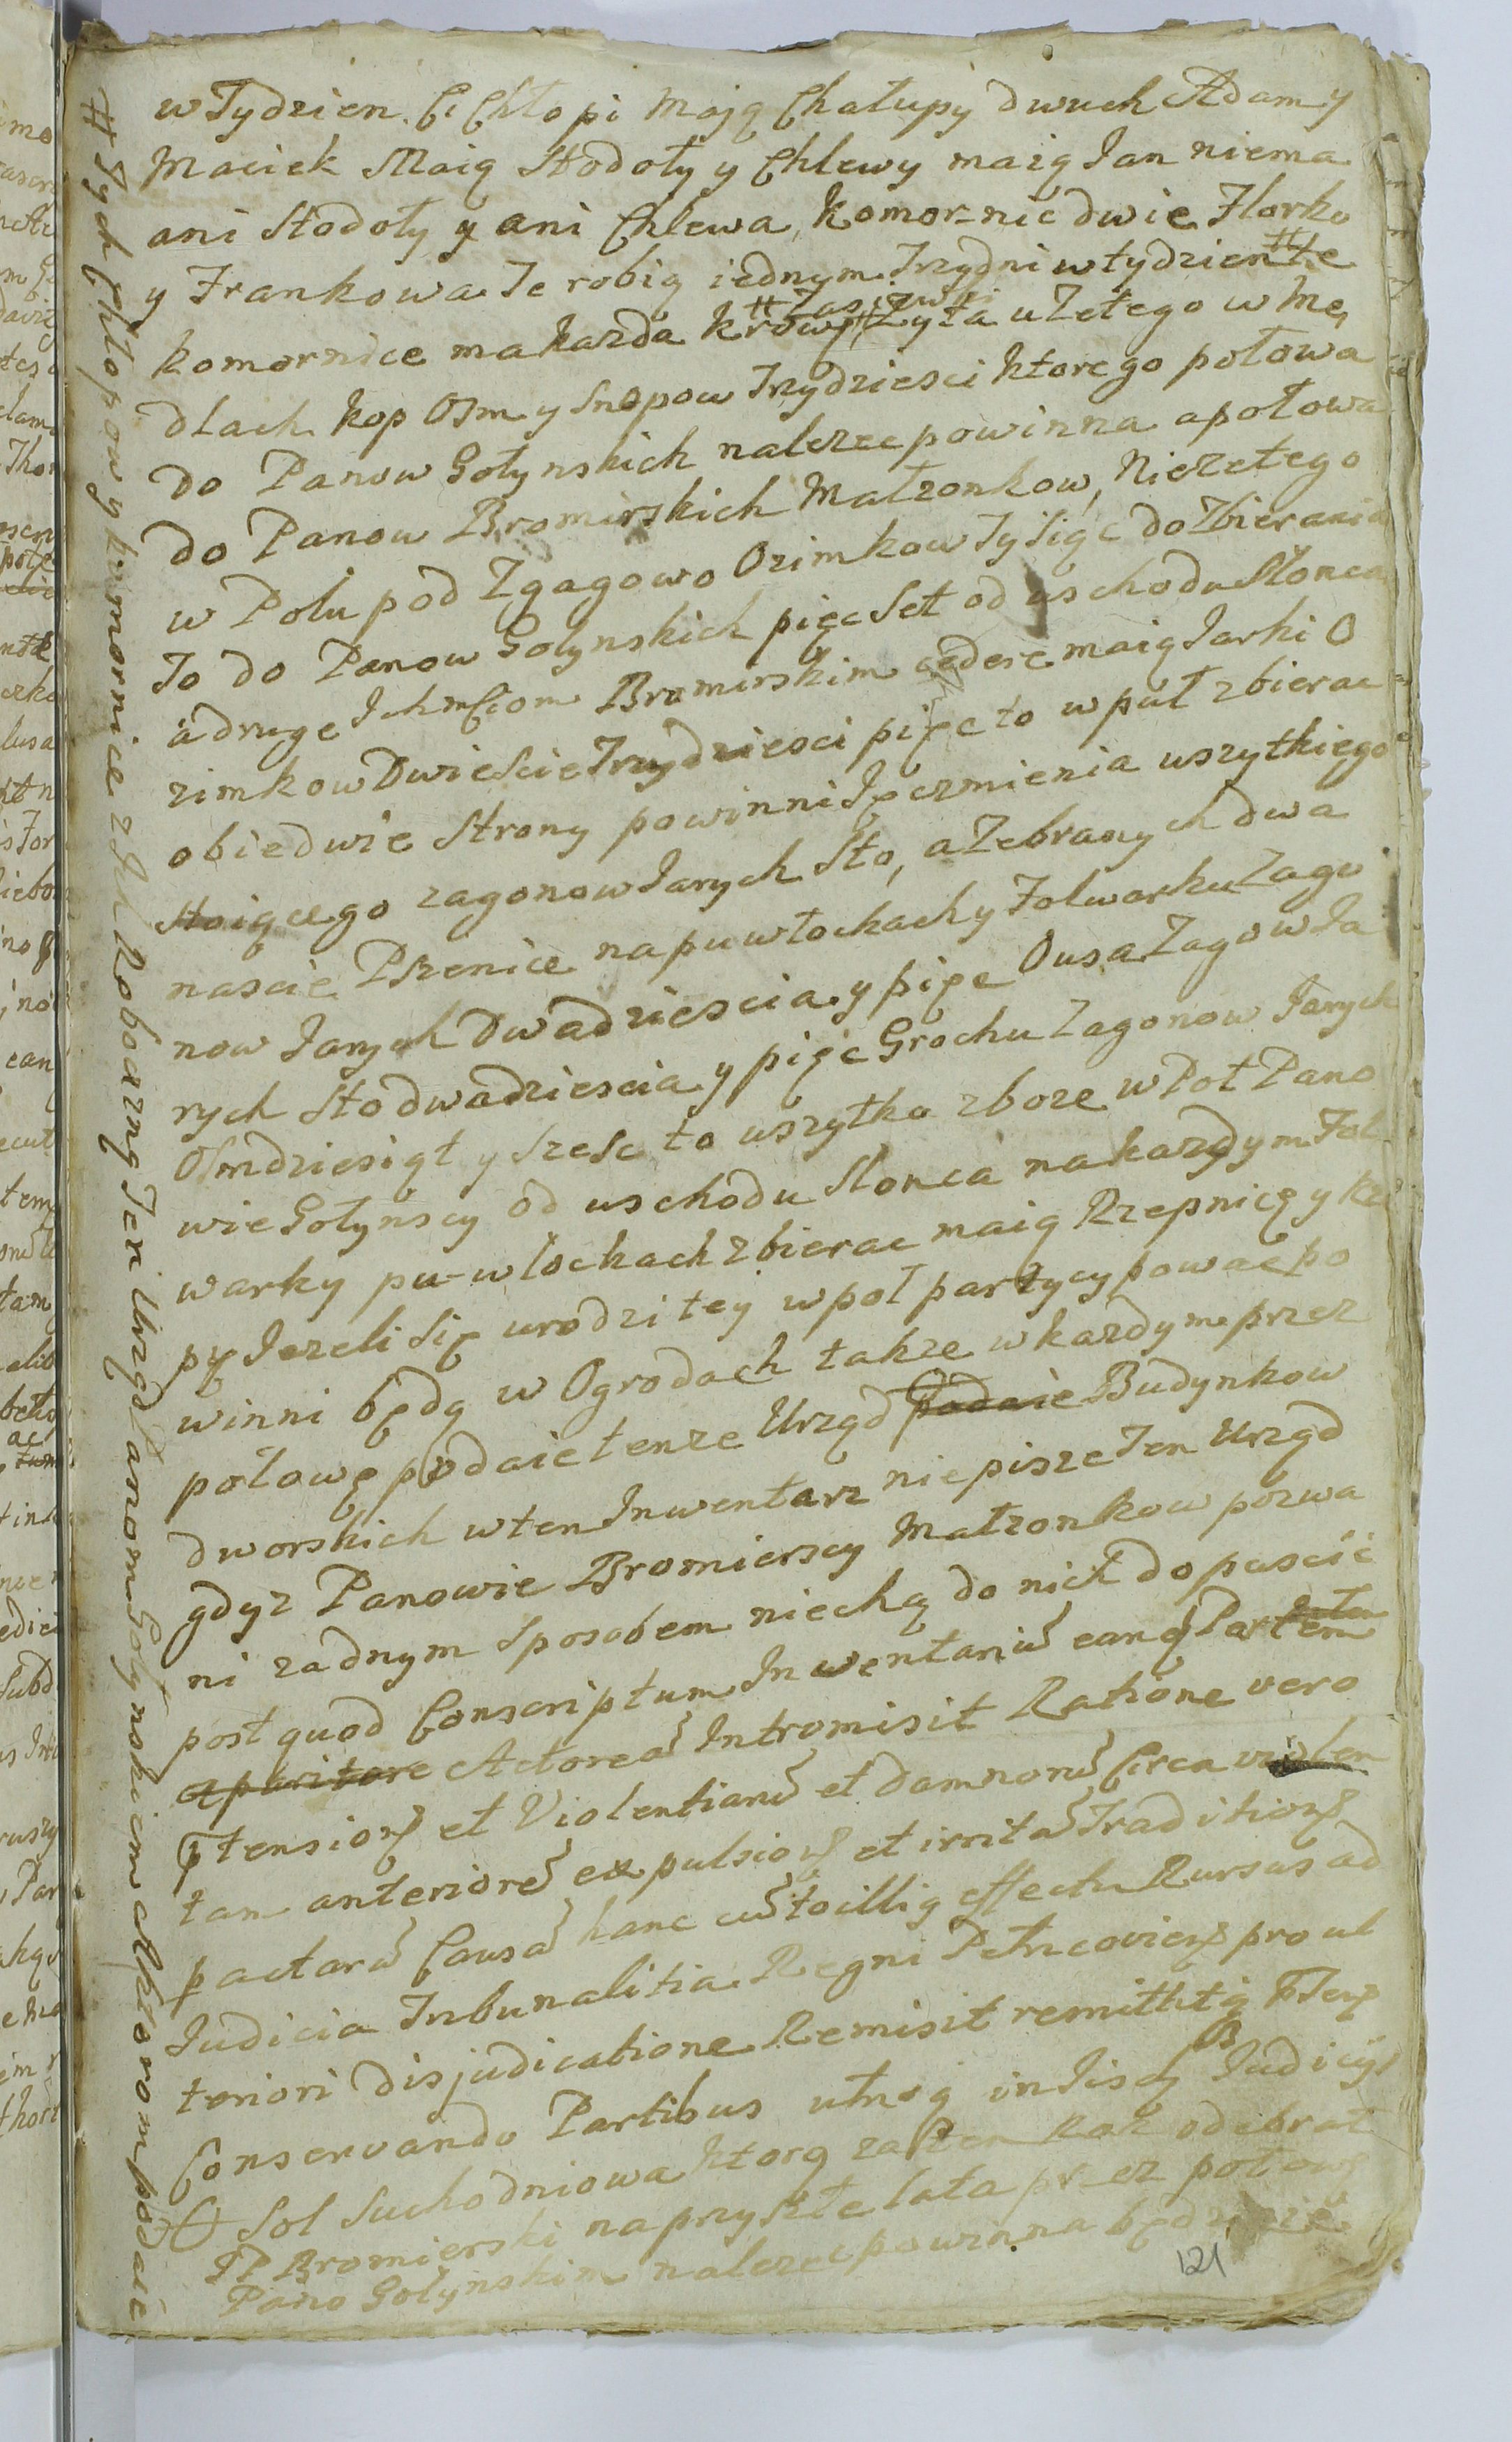 w Tydzien. Ci Chłopi Mają Chałupy dwuch Adam y
Maciek Maią Stodoły y Chlewy maią Jan niema
ani Stodoły y ani Chlewa, Komornic dwie Florko
y Frankowa Te robią iednym Trzydni wtydzien # te
komornice ma kazda krowy # Zasiewki Zyta uZetego w Me,
dlach kop Osm y Snopow Trzydziesci ktorego połowa
do Panow Gołynskich nalezec powinna a połowa
do Panow Bromirskich Małzonkow, Niezetego
w Polu pod Zgagowo Ozimkow Tysiąc do Zbierania
To do Panow Golynskich pięc Set od uschodu Słonca
a druge Ichmciom Bromirskim maią Jarki O
zimkow Dwiescie Trzydziesci pięc to w puł zbierac
obiedwie Strony powinni Jęczmienia uszytkiego
stoiącego zagonow Jarych Sto, a Zebranych dwa
nascie Pszenice na puwłokach y Folwarku Zago
now Jarych Dwadziescia y pięc Owsa Zagow Ja
rych Sto dwadziescia y pięc Grochu Zagonow Jarych
Osmdziesiąt y Szesc to uszytko zboze w Poł Pano
wie Gołynscy od uschodu Słonca na kazdym Fol
warky pu-włochach zbierac maią Rzepnicę y Rze
py Jezeli Się urodzi tey w poł partycypowac po
winni będą w Ogrodach takze w kazdym przez
połowę podaie tenze Urząd podaie Budynkow
dworskich w ten Inwentarz niepisze Ten Urząd
gdyz Panowie Bromierscy Małzonkow pozwa
ni zadnym Sposobem niechą do nich dopuscić
post quod Conscriptum Inwentariũ eanq Partem
aparitore Actoreã Intromisit Ratione vero
ptension et Violentiarũ et damnorũ Circa violen
tam anteriorẽ expulsion et irritã Tradition
pactarũ Causã hanc cũ to illiq effectu Rursus ad
Judicia Tribunalitia Regni Petricovien pro ul
teriori disjudicatione Remisit remittitq
Conservando Partibus utriq in Jisdẽ Judicijs
Sol Suchodniowa ktorą za ten Rok odebrał
JP Bromierski na przyszłe lata przez połowę
Pano Gołynskim nalezec powinna będzie
121
# Tych Chłopow y komornice z Ich Robozną Ten Urząd Panom Gołynskiem Aktorom podaie